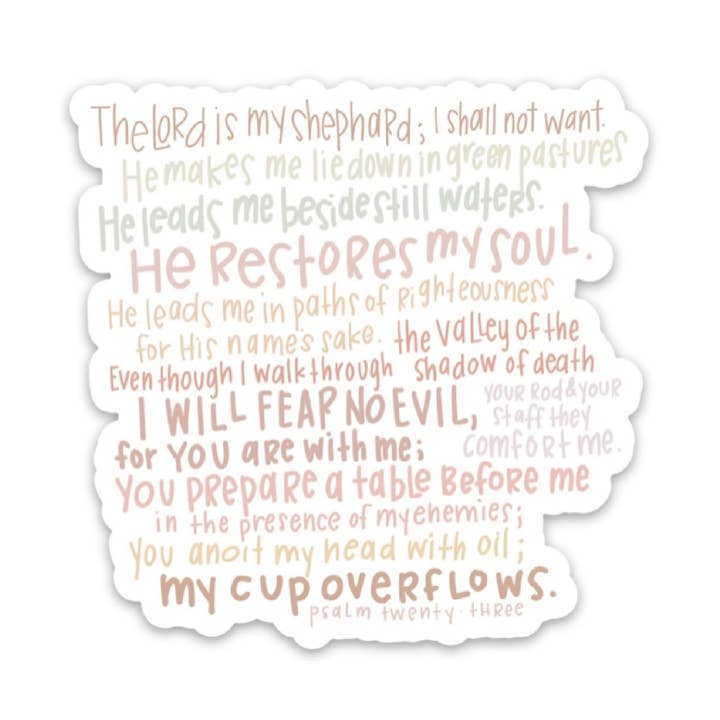 The LORD is my shephard; I shall not want.
He makes me lie down in green pastures
He leads me beside still waters.
He Restores my soul.
He leads me in paths of Righteousness
for His name's sake.
Even though I walk through
the valley of the
shadow of death
I WILL FEAR NO EVIL,
for YOU are with me;
your Rod & your
staff they
comfort me.
You prepare a table Before me
in the presence of my enemies;
You anoit my head with oil;
my cup overflows.
psalm twenty-three